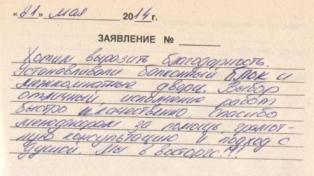 "21" мая 2014 г.
ЗАЯВЛЕНИЕ №
Хотим выразить благодарность.
Устанавливали балконный блок и
межкомнатные двери. Выбор
отличный, исполнение работ
быстро и качественно. Спасибо
менеджерам за помощь, грамот-
ную консультацию и подход с
душой. Мы в восторге!!!